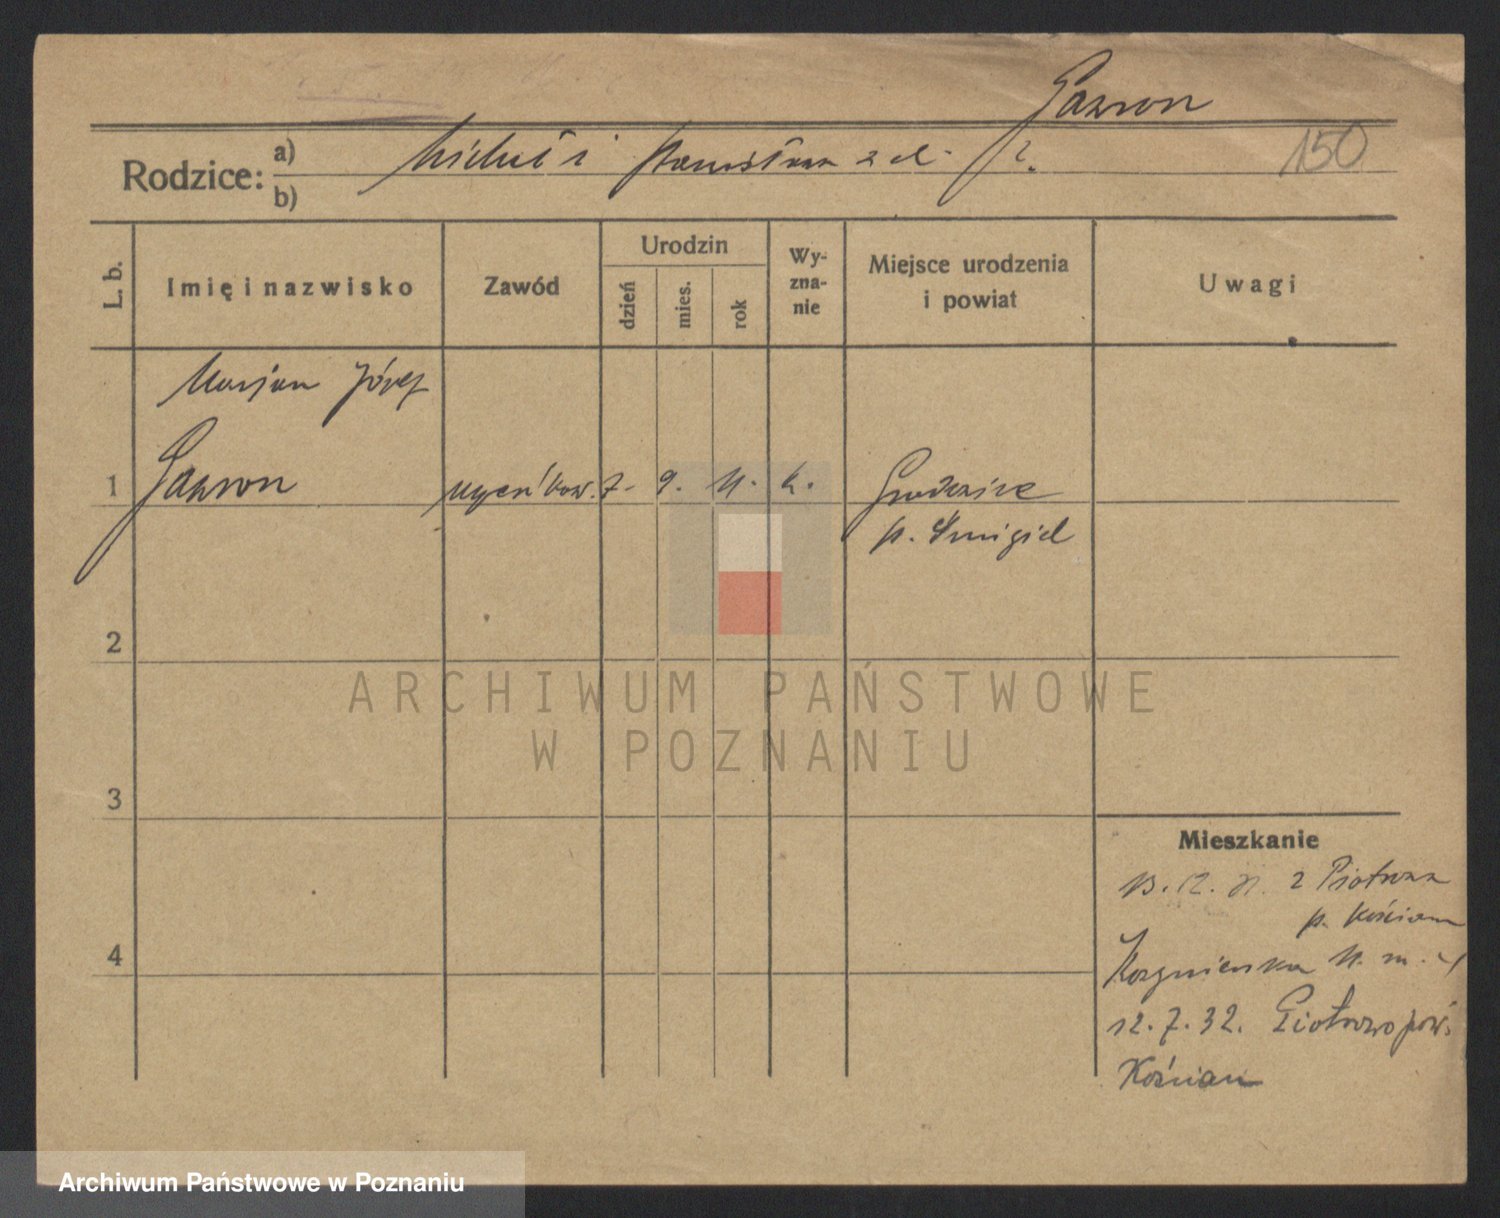 Gawron
150
Rodzice: a) Michał i Stanisława z d. ?
b)
L. b.
Imię i nazwisko
Zawód
Urodzin
dzień
mies.
rok
Wy-
zna-
nie
Miejsce urodzenia
i powiat
Uwagi
Marjan Józef
1 Gawron 7. 9. 11. k.
p. Śmigiel
2
3
4
ARCHIWUM PAŃSTWOWE
W POZNANIU
Mieszkanie
13. 12. 31. z Piotrowa
p. Kościan
11. m. 4
12. 7. 32. Piotrowo pow.
Kościan
Archiwum Państwowe w Poznaniu